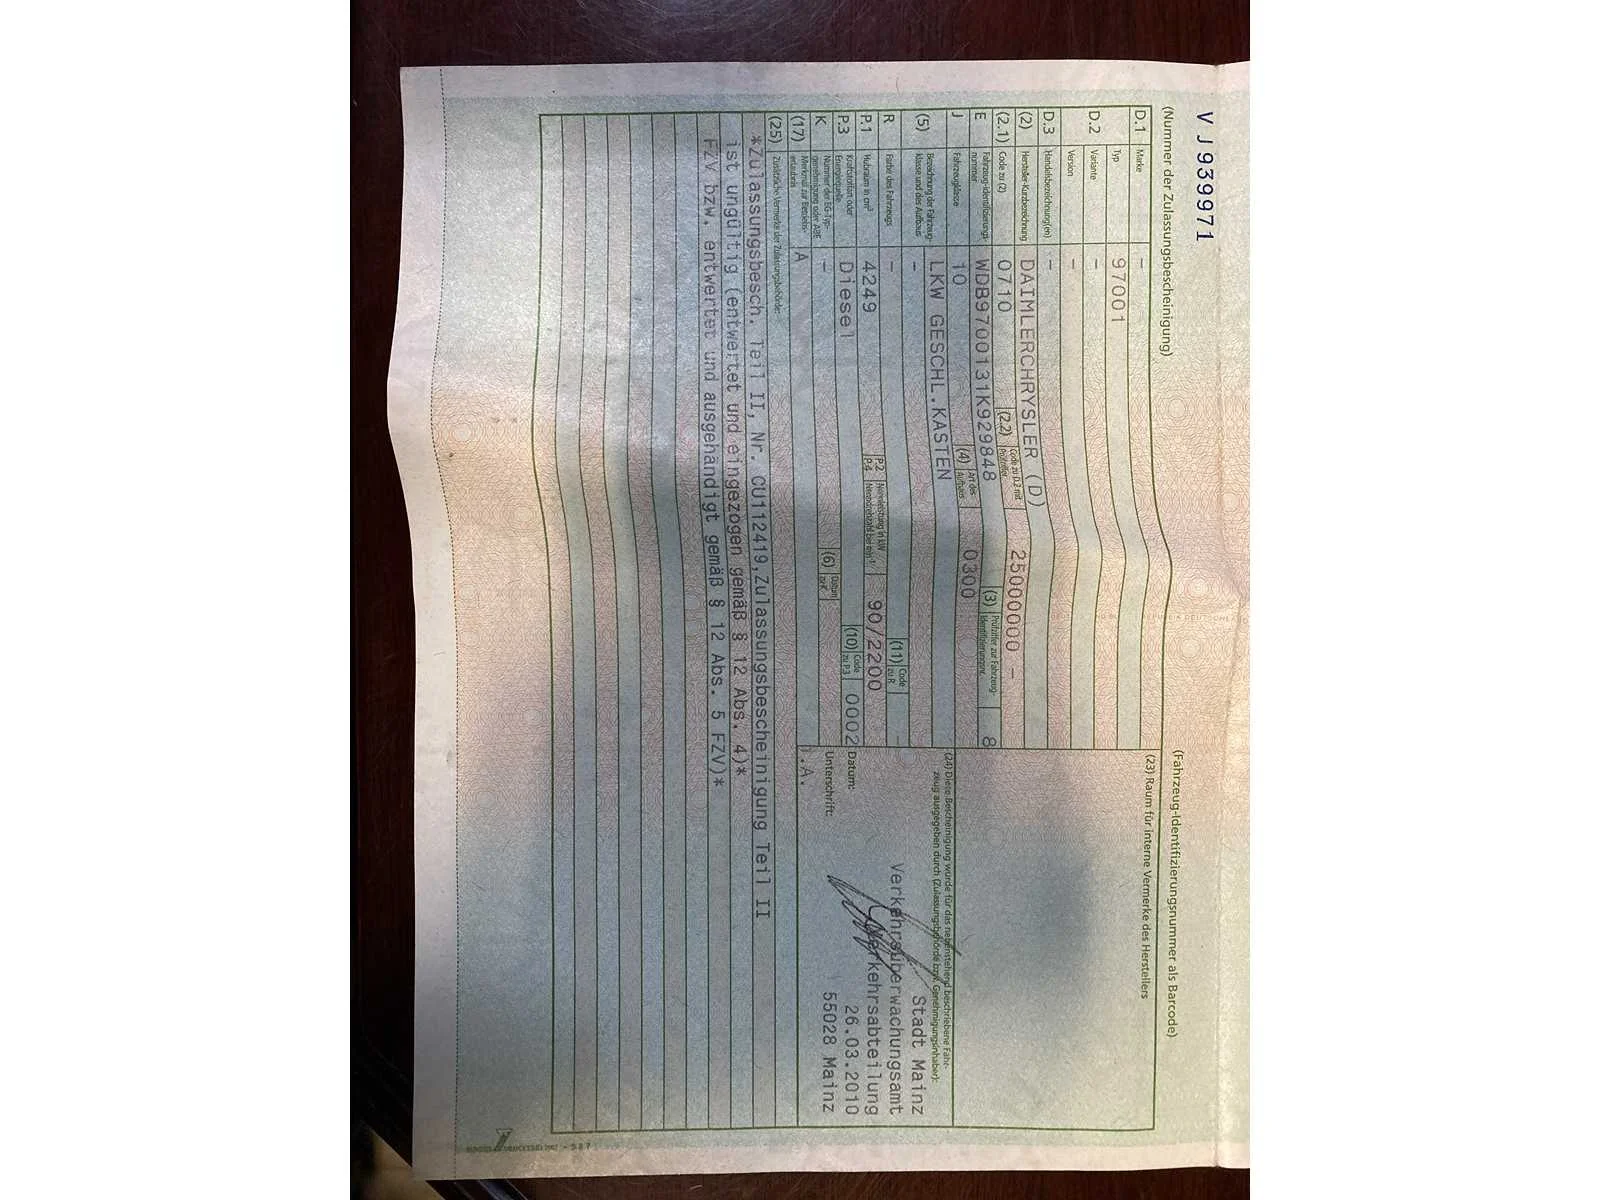 VJ939971
(Nummer der Zulassungsbescheinigung)
(Fahrzeug-Identifizierungsnummer als Barcode)
D.1 Marke –
(23) Raum für interne Vermerke des Herstellers
D.2 Typ 97001
Variante –
Version –
D.3 Handelsbezeichnung(en) –
(2) Hersteller-Kurzbezeichnung DAIMLERCHRYSLER (D)
(2.1) Code zu (2) 0710 (2.2) Code zu D.2 mit Prüfziffer 25000000 –
E Fahrzeug-Identifizierungs-
nummer WDB9700131K929848 (3) Prüfziffer zur Fahrzeug-
Identifizierungsnr. 8
J Fahrzeugklasse 10 (4) Art des Aufbaus 0300
(5) Bezeichnung der Fahrzeug-
klasse und des Aufbaus LKW GESCHL.KASTEN
–
R Farbe des Fahrzeugs – (11) Code zu R –
P.1 Hubraum in cm³ 4249 P.2 Nennleistung in kW
P.4 Nenndrehzahl bei min⁻¹ 90/2200
P.3 Kraftstoffart oder
Energiequelle Diesel (10) Code zu P.3 0002
K Nummer der EG-Typ-
genehmigung oder ABE – (6) Datum zu K
(17) Merkmal zur Betriebs-
erlaubnis A
(24) Diese Bescheinigung wurde für das nebenstehend beschriebene Fahr-
zeug ausgegeben durch (Zulassungsbehörde bzw. Genehmigungsinhaber):
Stadt Mainz
Verkehrsüberwachungsamt
Verkehrsabteilung
Datum: 26.03.2010
Unterschrift: 55028 Mainz
i.A.
(25) Zusätzliche Vermerke der Zulassungsbehörde:
*Zulassungsbesch. Teil II, Nr. CU112419,Zulassungsbescheinigung Teil II
ist ungültig (entwertet und eingezogen gemäß § 12 Abs. 4)*
FZV bzw. entwertet und ausgehändigt gemäß § 12 Abs. 5 FZV)*